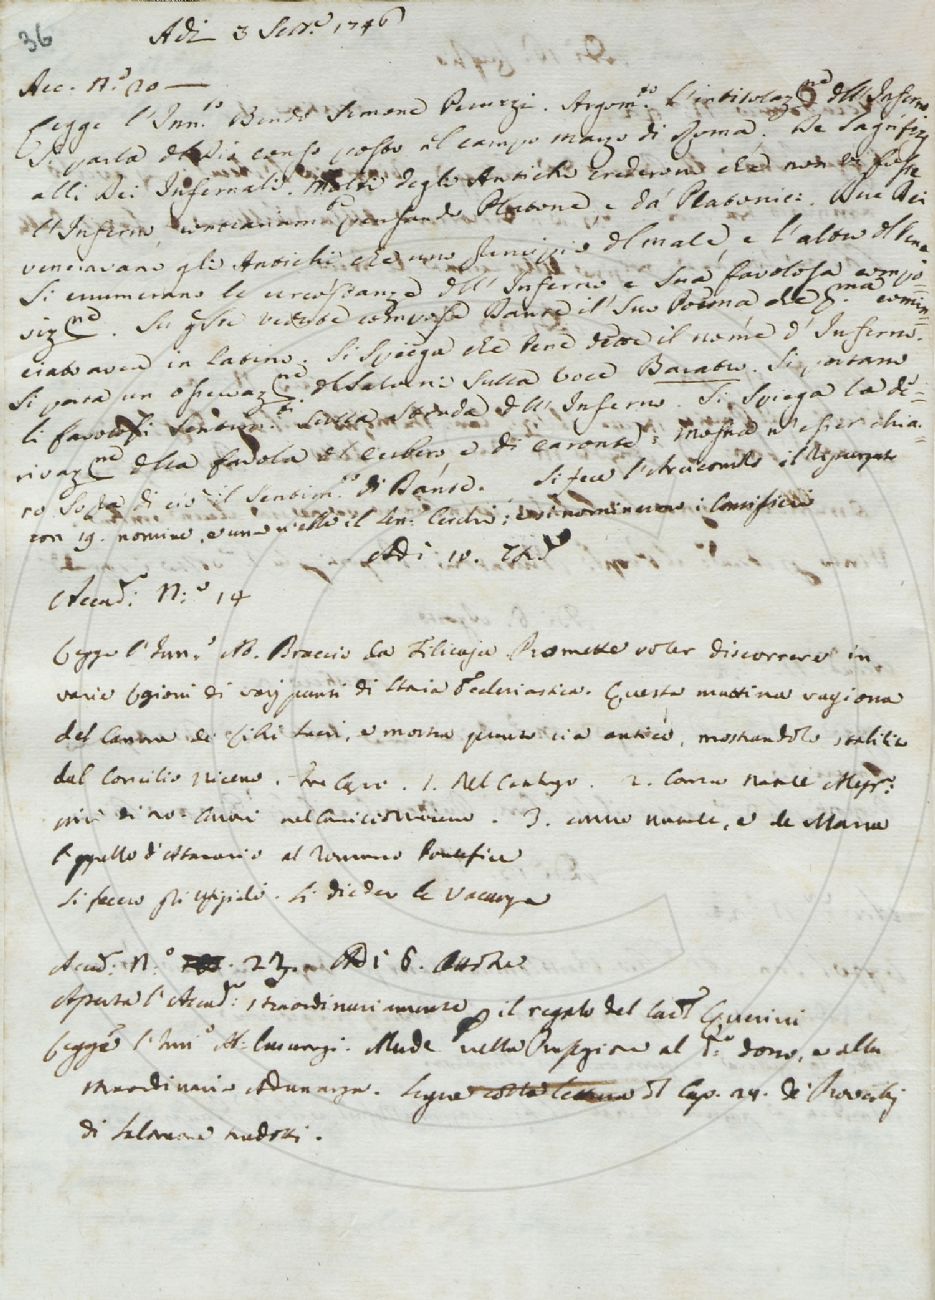 36
Adì 3 Settr.e 1746
Acc. N.o 20
Legge l'Inn.to Benedo Simone Peruzzi. Argom.to l'intitolaz.ne dell'Inferno
Si parla del Dio Censo posto al campo Marzo di Roma. De Sagrifizi
alli Dei Infernali. Molti degli Antichi crederono che non vi fosse
l'Inferno, contrariam.te pensando Platone, e da' Platonici. Due Dei
veneravano gli Antichi che uno Principio del male, e l'altro del bene
Si enumerano le circostanze dell'Inferno e sua favolosa compo=
siz.ne. Su q.ste vedute compose Dante il suo Poema che p.ma comin=
ciato avea in latino. Si spiega che bene dette il nome d'Inferno.
Si porta un osservaz.ne del Salvini sulla voce Baratro. Si portano
li favolosi sentim.ti sulla strada dell'Inferno. Si spiega la de=
rivaz.ne della favola del Cerbero e di Caronte; mostra n'esser chia=
ro sopra di ciò il sentim.to di Dante. Si fece l'Arciconsolo il Ripurgato
con 19. nomine, e una n'ebbe il Sen.r Cerchi; e si nominarono i Consiglieri
Adi 10. 7bre
Accad.: N.o 14
Legge l'Inn.o Ab. Braccio da Filicaja Promette voler discorrere in
varie Legioni di varj punti di Storia Ecclesiastica. Questa mattina ragiona
del Canone de' Libri Sacri, e mostra quanto sia antico, mostrandolo stabilito
dal Concilio Niceno. Tre Capi. 1. Nel Catalogo. 2. contro Natale Aless.:
3. contro Natale, e de Marca
l'appello d'Atanasio al Romano Pontefice
Si fecero gli Ufizioli. Si dieder le Vacanze
Accad. N.o 23. Adì 6. Ottobre
Aperta l'Accad.: straordinariamente p il regalo del Card. Querini
Legge l'Inn.o Ab. Lasuerzi. Allude nella Prefazione al d.o dono, e alla
straordinaria Adunanza. Segue colla lettura del Cap. 24. de' Proverbj
di Salomone tradotti.